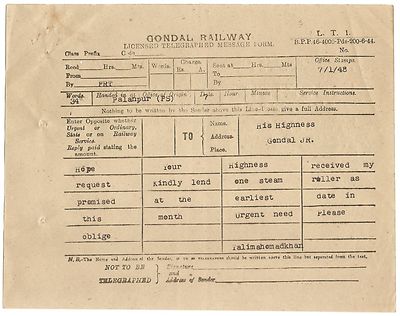 GONDAL RAILWAY
LICENSED TELEGRAPHED MESSAGE FORM.
L. T. 1.
B.P.P 46-4000-Pds-200-6-44.
Class Prefix Code No.
Recd Hrs. Mts. Words. Charge Sent at Hrs. Mts Office Stamps.
From Rs. A. To 7/1/48
By PRT By
Words. Handed in at Office of Origin Date. Hour. Minute Service Instructions.
34 Palanpur (PS)
Nothing to be written by the Sender above this Line-Please give a full Address.
Enter Opposite whether
Urgent or Ordinary,
State or on Railway
Service.
Reply paid stating the
amount.
TO
Name. His Highness
Address.
Place. Gondal JR.
Hope Your Highness received my
request Kindly lend one steam roller as
promised at the earliest date in
this month Urgent need Please
oblige
Talimahomadkhan
N.B.-The Name and Address of the Sender, if to be TELEGRAPHED should be written above this line but separated from the text.
NOT TO BE
TELEGRAPHED
Signature
and
Address of Sender